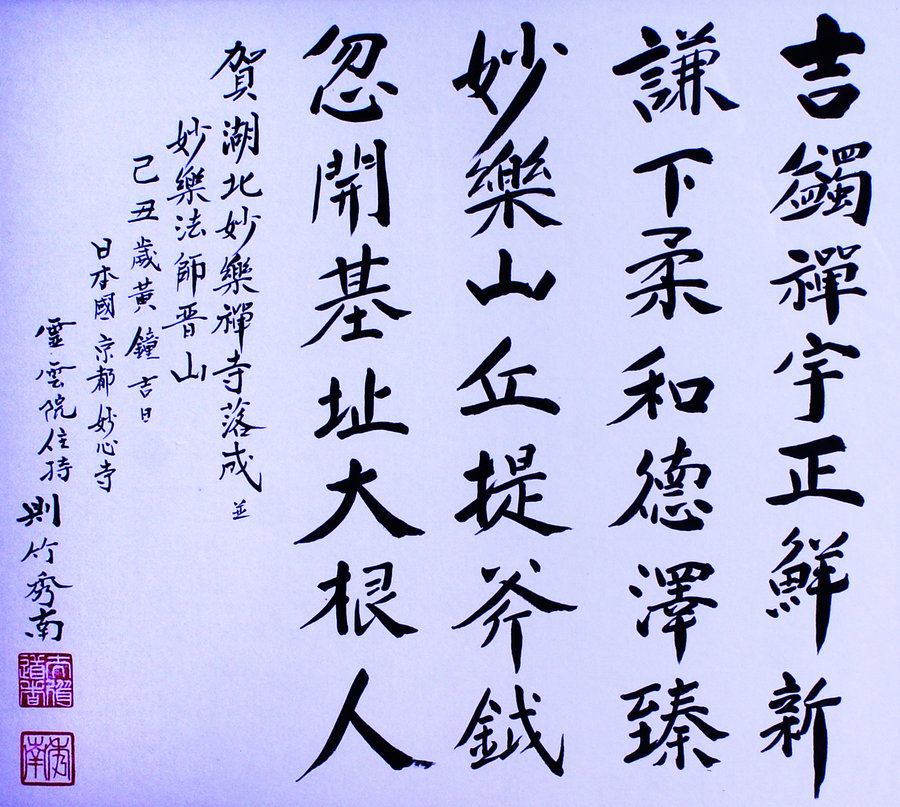 吉蠲禪宇正鮮新
謙下柔和德澤臻
妙樂山丘提斧鉞
忽開基址大根人
賀湖北妙樂禪寺落成並
妙樂法師晋山
己丑歲黃鐘吉日
日本國京都妙心寺
霊雲院住持則竹秀南
秀南